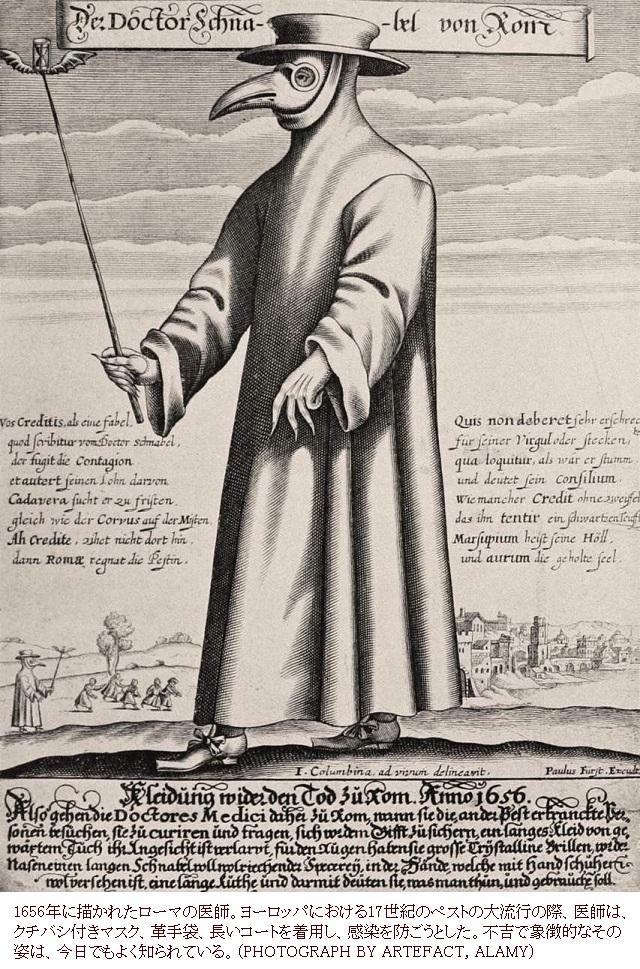 Der Doctor Schna-bel von Rom
Vos Creditis, als eine fabel,
quod scribitur vom Doctor Schnabel,
der fugit die Contagion
et aufert seinen Lohn darvon
Cadavera sucht er zu fristen,
gleich wie der Corvus auf der Misten.
Ah Credite, zihet nicht dort hin,
dann Romæ regnat die Pestin.
Quis non deberet sehr erschrec
für seiner Virgul oder stecken,
qua loquitur, als wär er stumm
und deutet sein Consilium.
Wie mancher Credit ohne zweiffel
das ihn tentir ein schwartzen teuff
Marsupium heist seine Höll,
und aurum die geholte seel.
I. Columbina, ad vivum delineavit. Paulus Fürst Excudt
Kleidung wider den Tod zu Rom. Anno 1656.
Also gehen die Doctores Medici daher zu Rom, wann sie die, an der Pest erkranckte Per-
sonen besuchen, sie zu curiren und tragen, sich wider dem Gifft zu sichern, ein langes Kleid von ge-
wäxtem Tuch ihr Angesicht ist verlarvt, für den Augen haben sie grosse Crystalline Brillen, wider
Nasen einen langen Schnabel voll wolriechender Specerey, in der Hände, welche mit Handschuher
wol versehen ist, eine lange Ruthe und darmit deuten sie, was man thun, und gebrauche soll.
1656年に描かれたローマの医師。ヨーロッパにおける17世紀のペストの大流行の際、医師は、
クチバシ付きマスク、革手袋、長いコートを着用し、感染を防ごうとした。不吉で象徴的なその
姿は、今日でもよく知られている。(PHOTOGRAPH BY ARTEFACT, ALAMY)